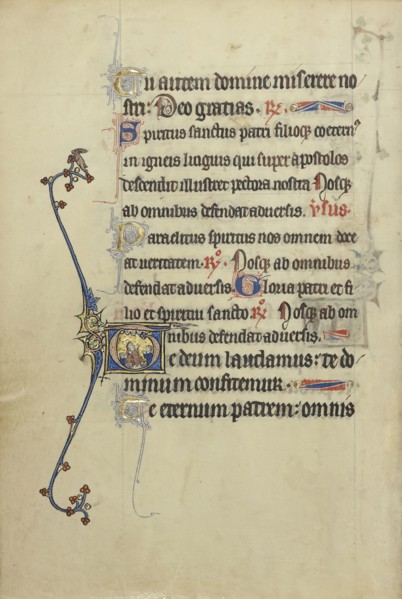 Tu autem domine miserere no
stri: Deo gratias. R.
Spiritus sanctus patri filioq; coetern9
in igneis linguis qui super apostolos
descendit illustret pectora nostra Nosq;
ab omnibus defendat adversis. Vsus.
Paraclitus spiritus nos omnem doce
at veritatem. Ro. Nosq; ab omnibus
defendat adversis. Gloria patri et fi
lio et spiritu sancto Ro Nosq; ab om
nibus defendat adversis.
Te deum laudamus: te do
minum confitemur.
Te eternum patrem: omnis